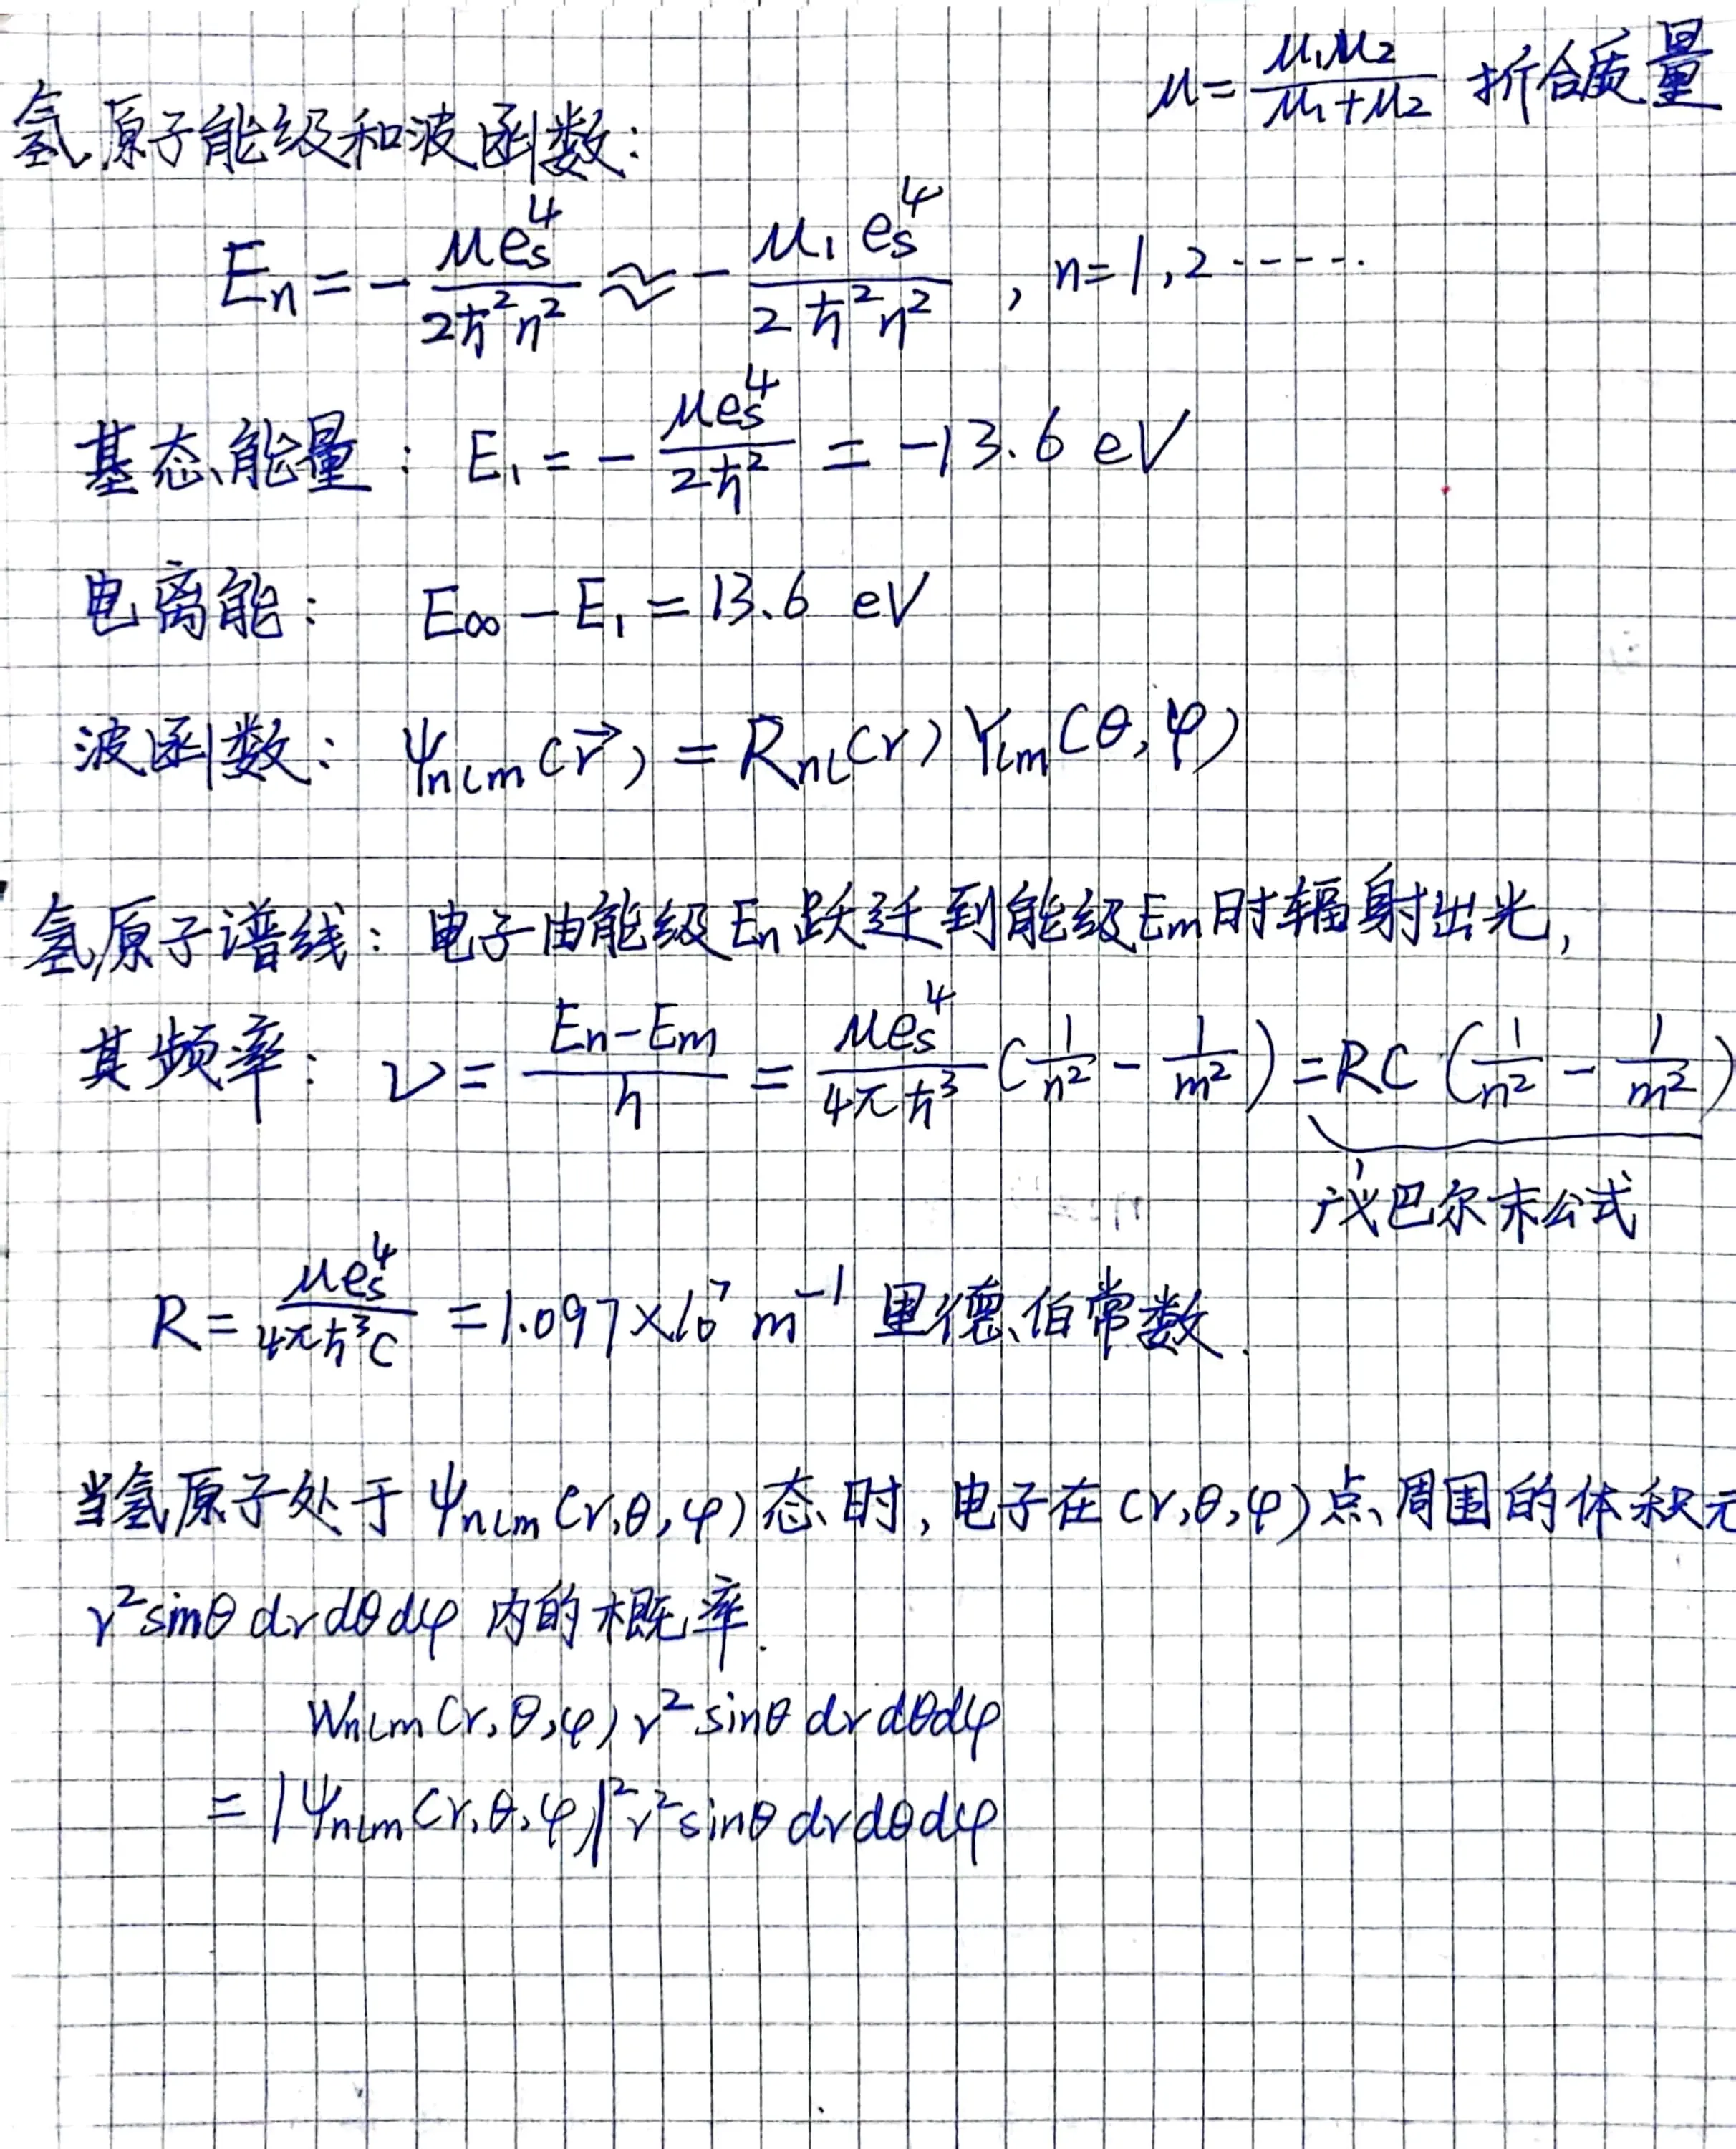 μ = μ₁μ₂/(μ₁+μ₂) 折合质量
氢原子能级和波函数:
Eₙ = - μeₛ⁴/(2ħ²n²) ≈ - μ₁eₛ⁴/(2ħ²n²) , n=1,2······
基态能量: E₁ = - μeₛ⁴/(2ħ²) = -13.6 eV
电离能: E∞ - E₁ = 13.6 eV
波函数: ψₙₗₘ(r⃗) = Rₙₗ(r) Yₗₘ(θ,φ)
氢原子谱线: 电子由能级Eₙ跃迁到能级Eₘ时辐射出光,
其频率: ν = (Eₙ-Eₘ)/h = μeₛ⁴/(4πħ³) (1/n² - 1/m²) = RC (1/n² - 1/m²)
巴尔末公式
R = μeₛ⁴/(4πħ³c) = 1.097×10⁷ m⁻¹ 里德伯常数.
当氢原子处于 ψₙₗₘ(r,θ,φ) 态时, 电子在(r,θ,φ)点周围的体积元
r²sinθ dr dθ dφ 内的概率.
Wₙₗₘ(r,θ,φ) r² sinθ dr dθ dφ
= |ψₙₗₘ(r,θ,φ)|² r² sinθ dr dθ dφ